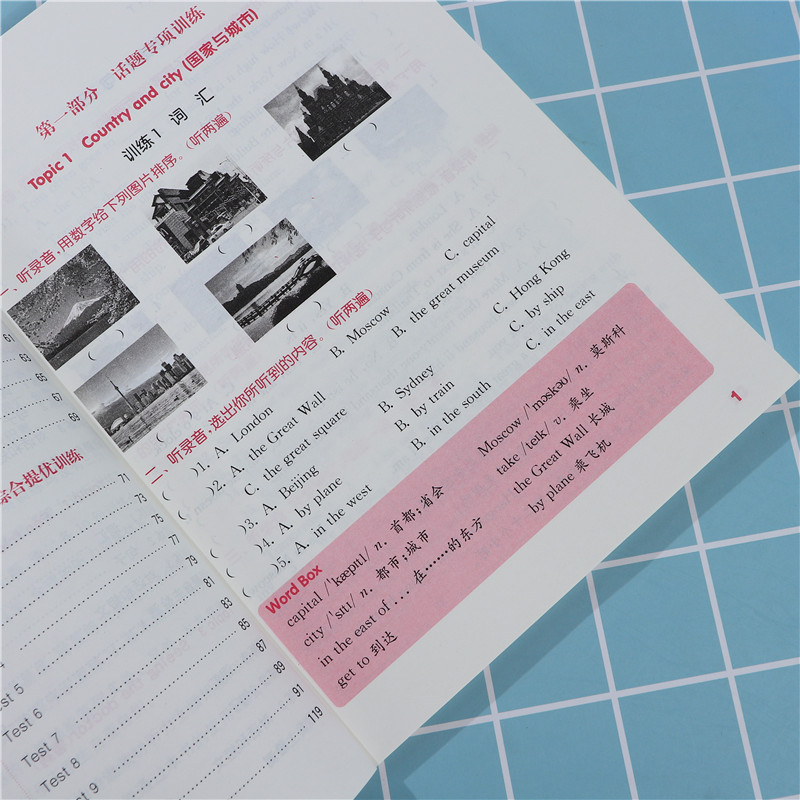 第一部分 话题专项训练
Topic 1 Country and city (国家与城市)
训练1 词 汇
一、听录音,用数字给下列图片排序。(听两遍)
( ) ( ) ( )
( ) ( )
二、听录音,选出你所听到的内容。(听两遍)
( )1. A. London B. Moscow C. capital
( )2. A. the Great Wall B. the great museum
C. the great square
( )3. A. Beijing B. Sydney C. Hong Kong
( )4. A. by plane B. by train C. by ship
( )5. A. in the west B. in the south C. in the east
Word Box
capital /ˈkæpɪtl/ n. 首都;省会 Moscow /ˈmɒskəʊ/ n. 莫斯科
city /ˈsɪtɪ/ n. 都市;城市 take /teɪk/ v. 乘坐
in the east of ... 在……的东方 the Great Wall 长城
get to 到达 by plane 乘飞机
1
61
63
65
67
69
综合提优训练
71
73
75
77
79
81
83
85
Test 5 87
Test 6 89
Test 7 91
Test 8 119
Test 9